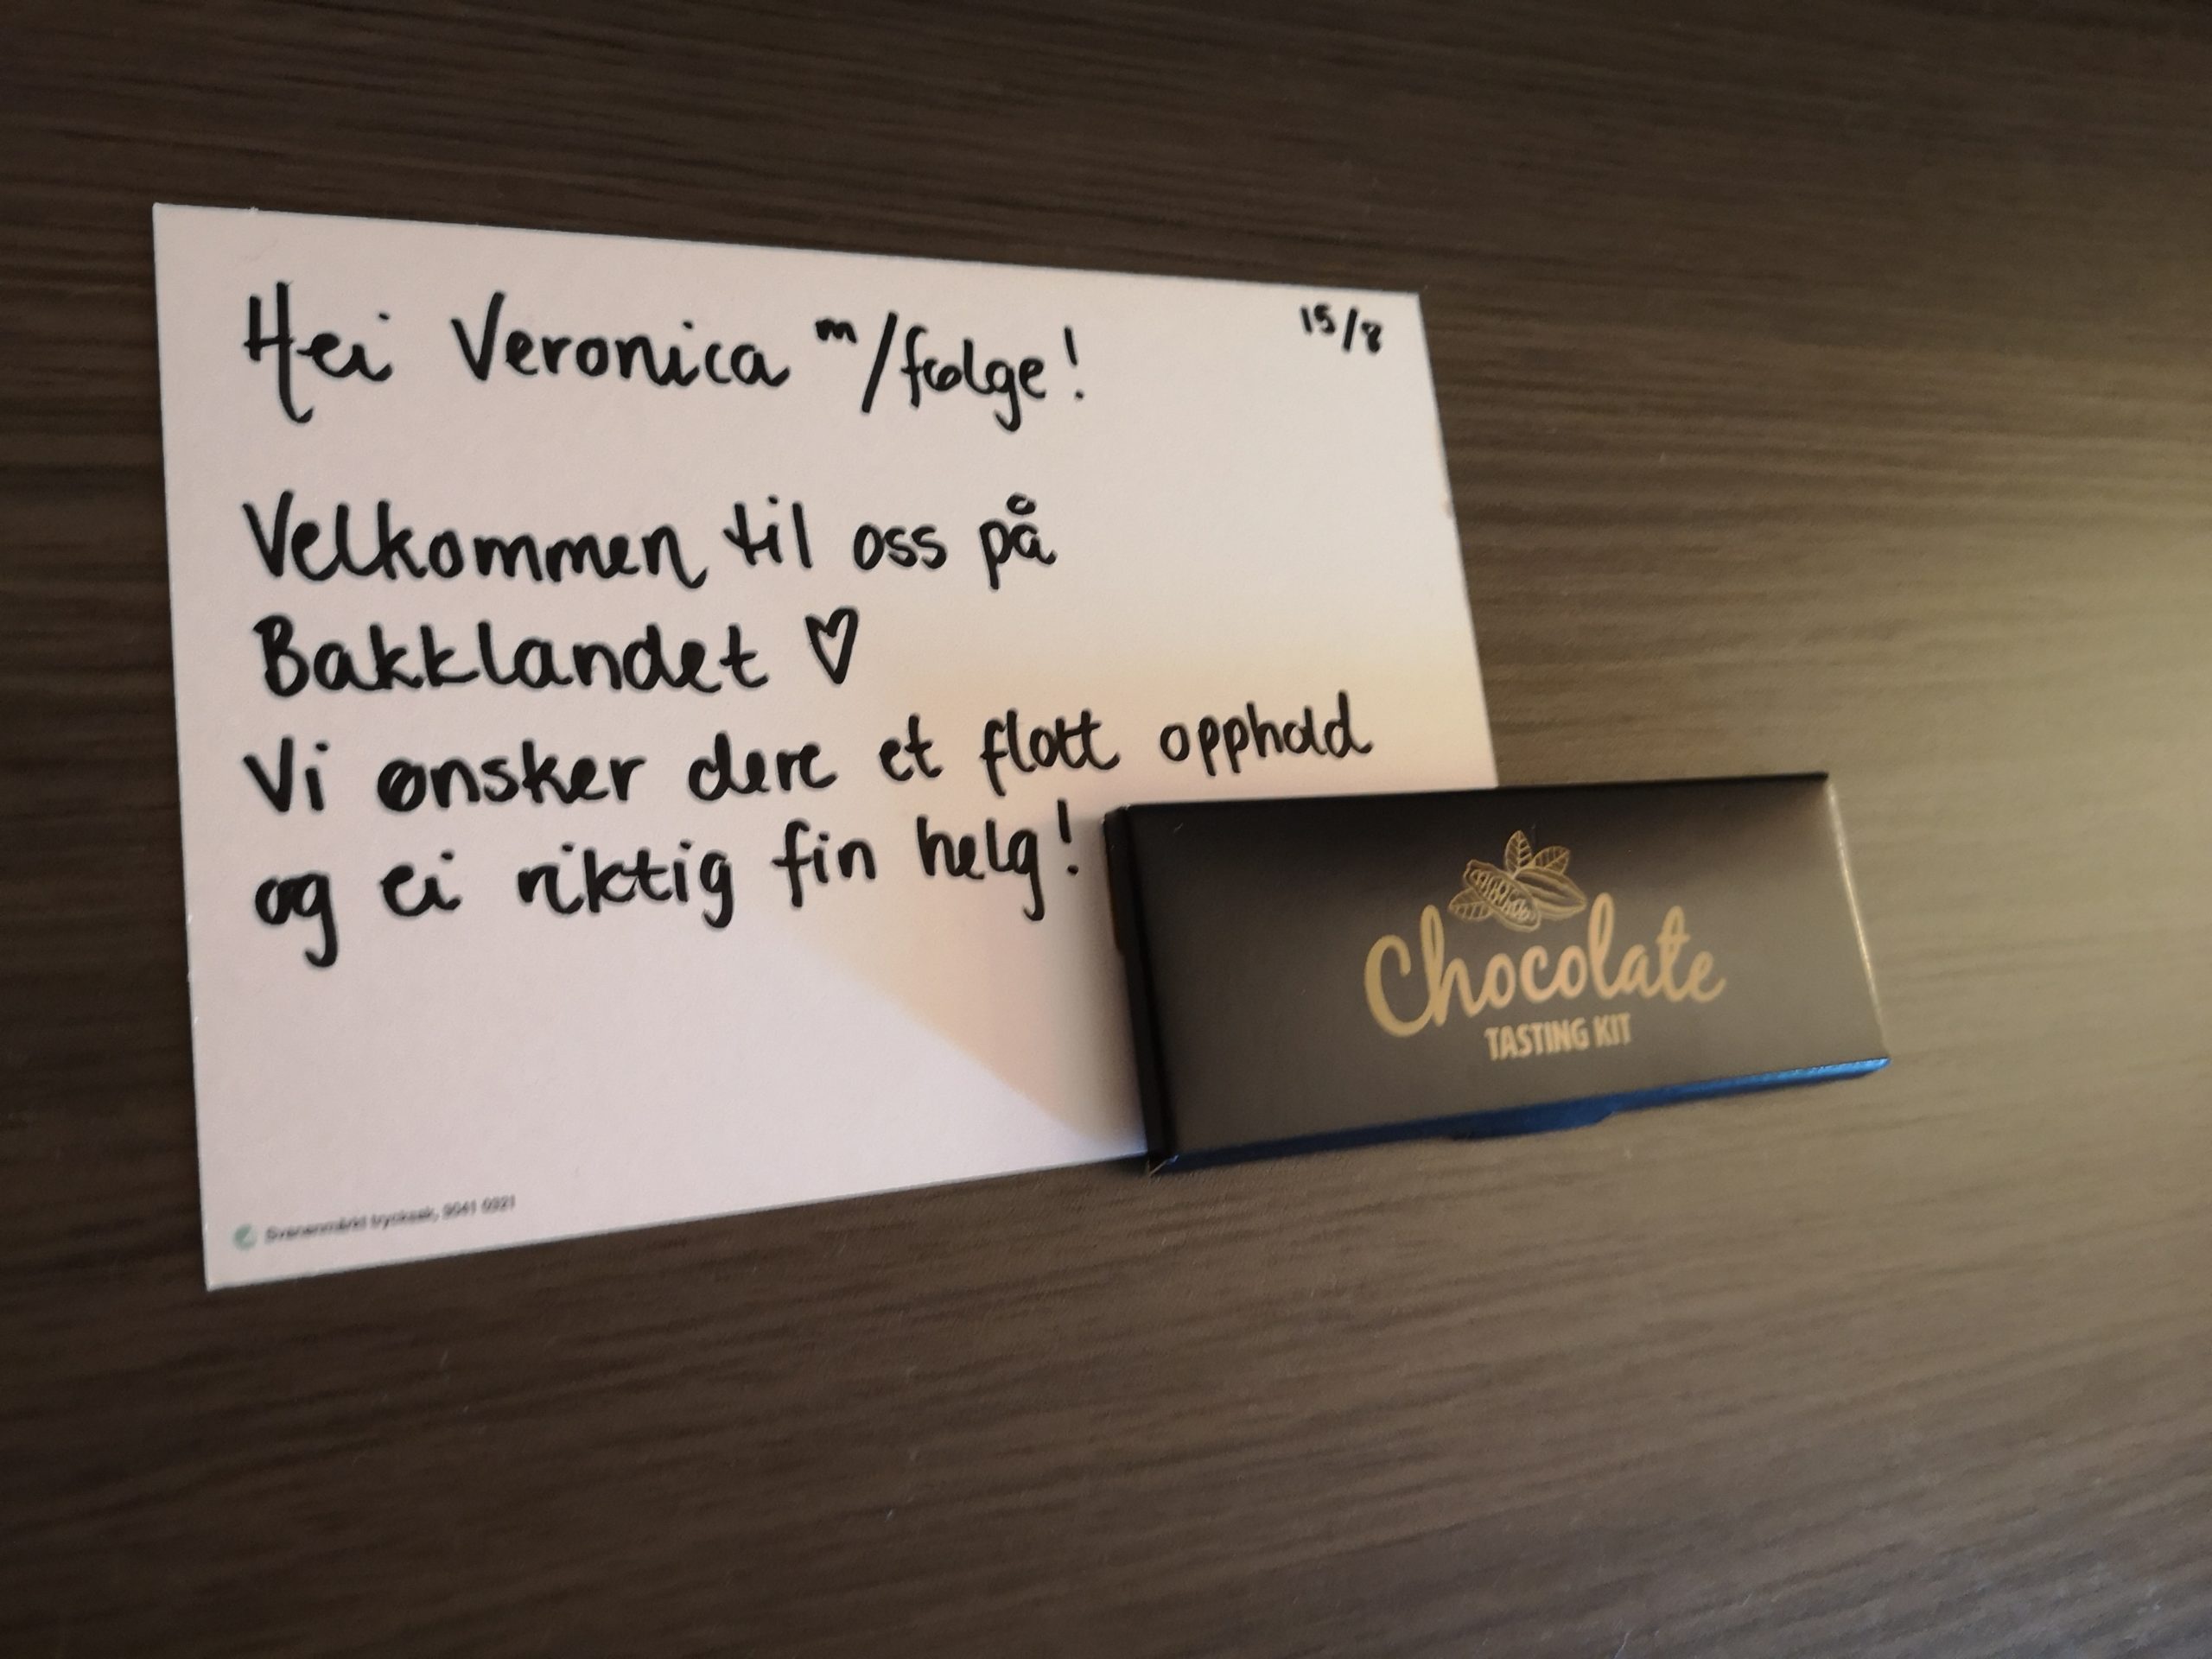 Hei Veronica m/følge!
15/8
Velkommen til oss på
Bakklandet ♡
Vi ønsker dere et flott opphold
og ei riktig fin helg!
Chocolate
TASTING KIT
Svanenmärkt trycksak, 3041 0921